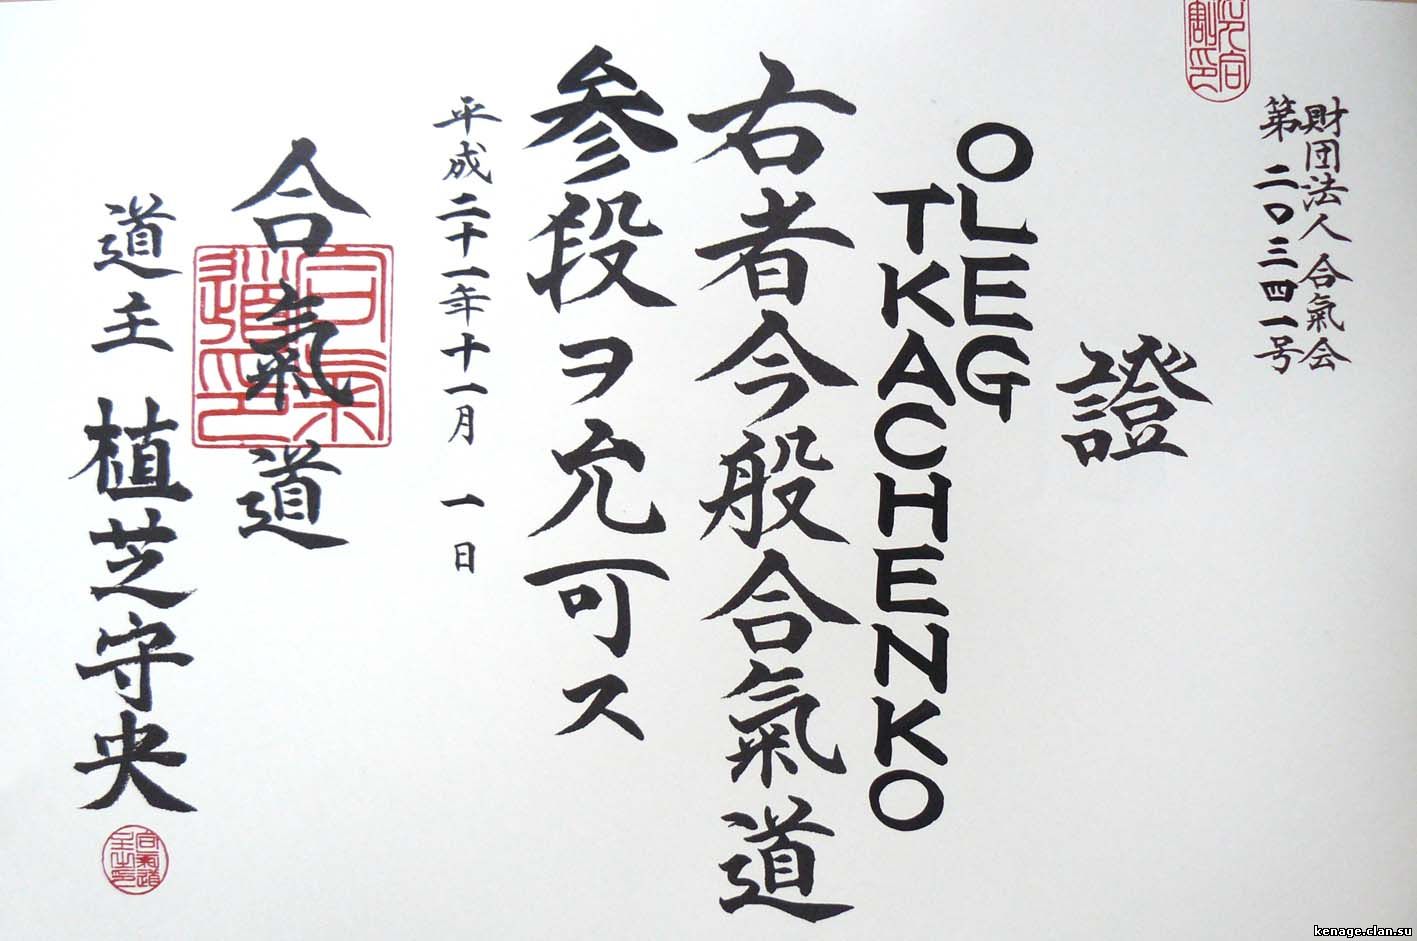 財団法人合氣会
第二〇三四一号
證
OLEG
TKACHENKO
右者今般合氣道
参段ヲ允可ス
平成二十一年十一月 一日
合氣道
道主 植芝守央
kenage.clan.su